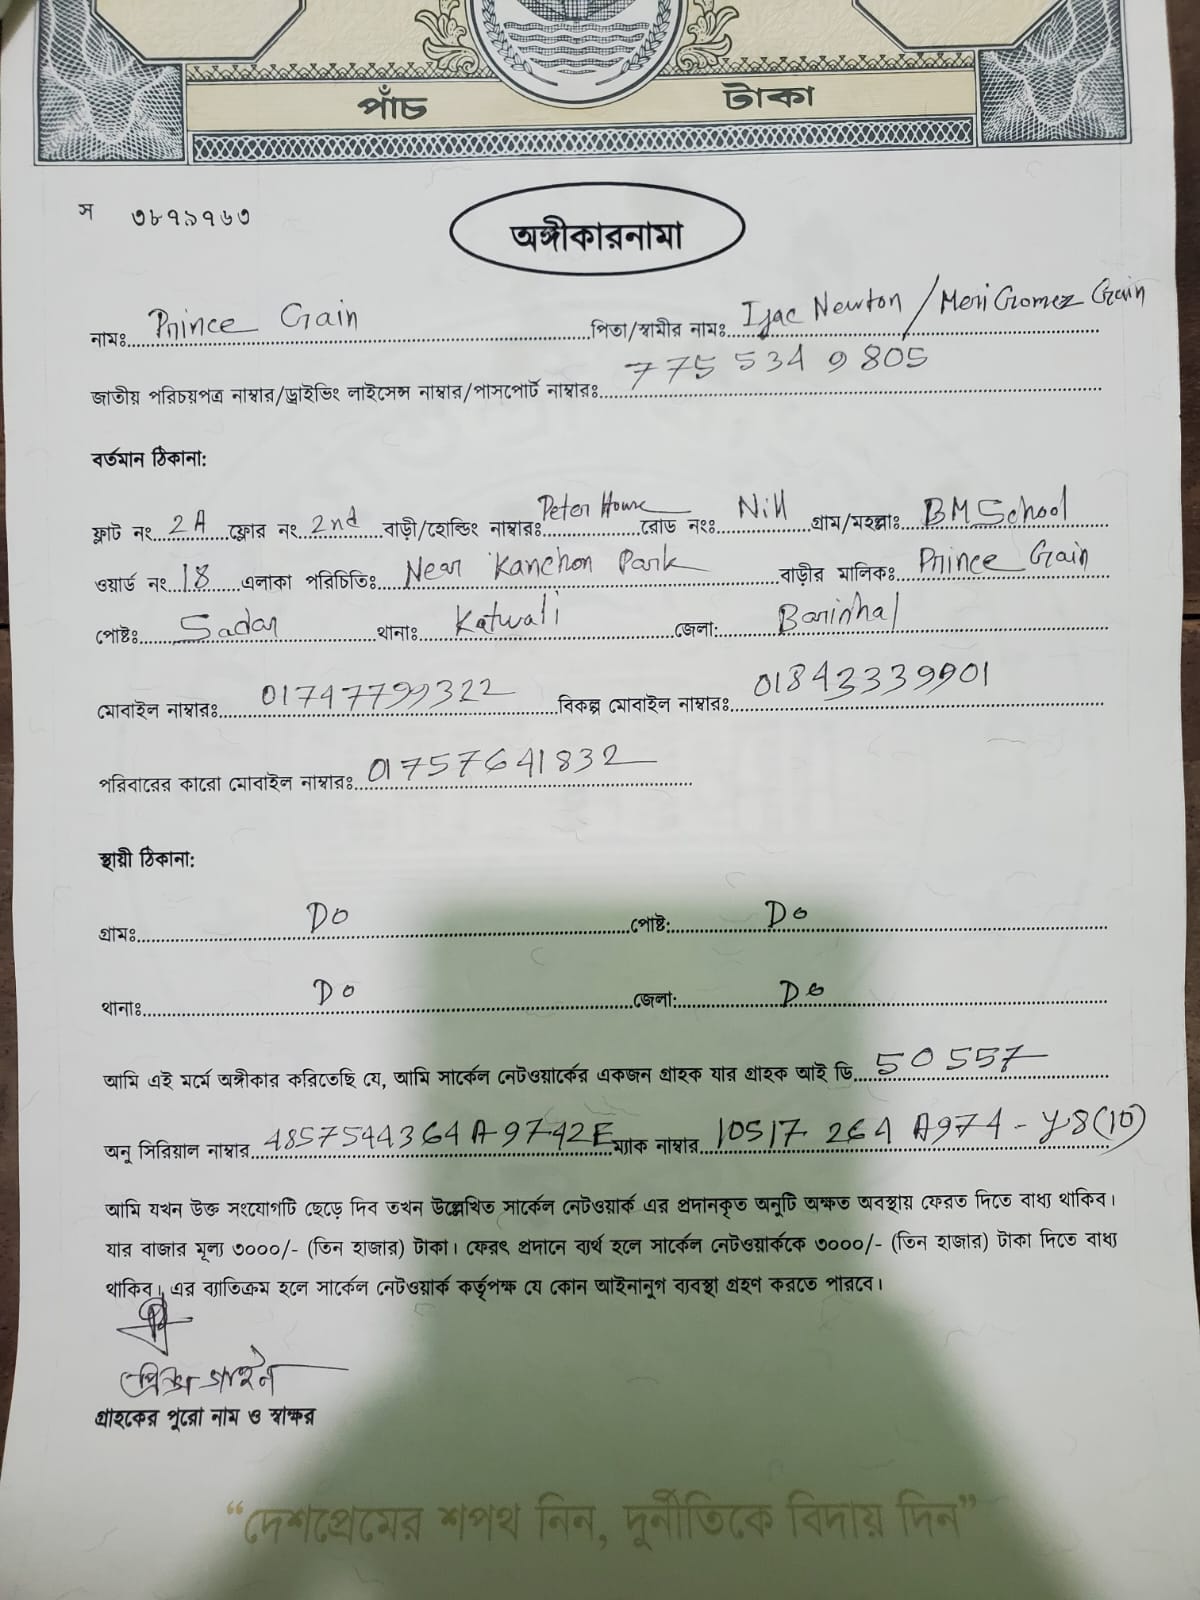 পাঁচ টাকা
স ৩৮৭১৭৬৩
অঙ্গীকারনামা
নামঃ Prince Gain পিতা/স্বামীর নামঃ Ijac Newton / Meri Gomez Gain
জাতীয় পরিচয়পত্র নাম্বার/ড্রাইভিং লাইসেন্স নাম্বার/পাসপোর্ট নাম্বারঃ 775 534 9805
বর্তমান ঠিকানা:
ফ্লাট নং 2A ফ্লোর নং 2nd বাড়ী/হোল্ডিং নাম্বারঃ Peter House রোড নংঃ Nill গ্রাম/মহল্লাঃ BM School
ওয়ার্ড নং 18 এলাকা পরিচিতিঃ Near Kanchon Park বাড়ীর মালিকঃ Prince Gain
পোষ্টঃ Sadar থানাঃ Kotwali জেলা: Barishal
মোবাইল নাম্বারঃ 01747799322 বিকল্প মোবাইল নাম্বারঃ 01843339901
পরিবারের কারো মোবাইল নাম্বারঃ 01757641832
স্থায়ী ঠিকানা:
গ্রামঃ Do পোষ্ট: Do
থানাঃ Do জেলা: Do
আমি এই মর্মে অঙ্গীকার করিতেছি যে, আমি সার্কেল নেটওয়ার্কের একজন গ্রাহক যার গ্রাহক আই ডি 50557
অনু সিরিয়াল নাম্বার 4857544364A9742E ম্যাক নাম্বার 10517 264 A974 - Y8(10)
আমি যখন উক্ত সংযোগটি ছেড়ে দিব তখন উল্লেখিত সার্কেল নেটওয়ার্ক এর প্রদানকৃত অনুটি অক্ষত অবস্থায় ফেরত দিতে বাধ্য থাকিব।
যার বাজার মূল্য ৩০০০/- (তিন হাজার) টাকা। ফেরৎ প্রদানে ব্যর্থ হলে সার্কেল নেটওয়ার্ককে ৩০০০/- (তিন হাজার) টাকা দিতে বাধ্য
থাকিব। এর ব্যাতিক্রম হলে সার্কেল নেটওয়ার্ক কর্তৃপক্ষ যে কোন আইনানুগ ব্যবস্থা গ্রহণ করতে পারবে।
প্রিন্স গাইন
গ্রাহকের পুরো নাম ও স্বাক্ষর
“দেশপ্রেমের শপথ নিন, দুর্নীতিকে বিদায় দিন”